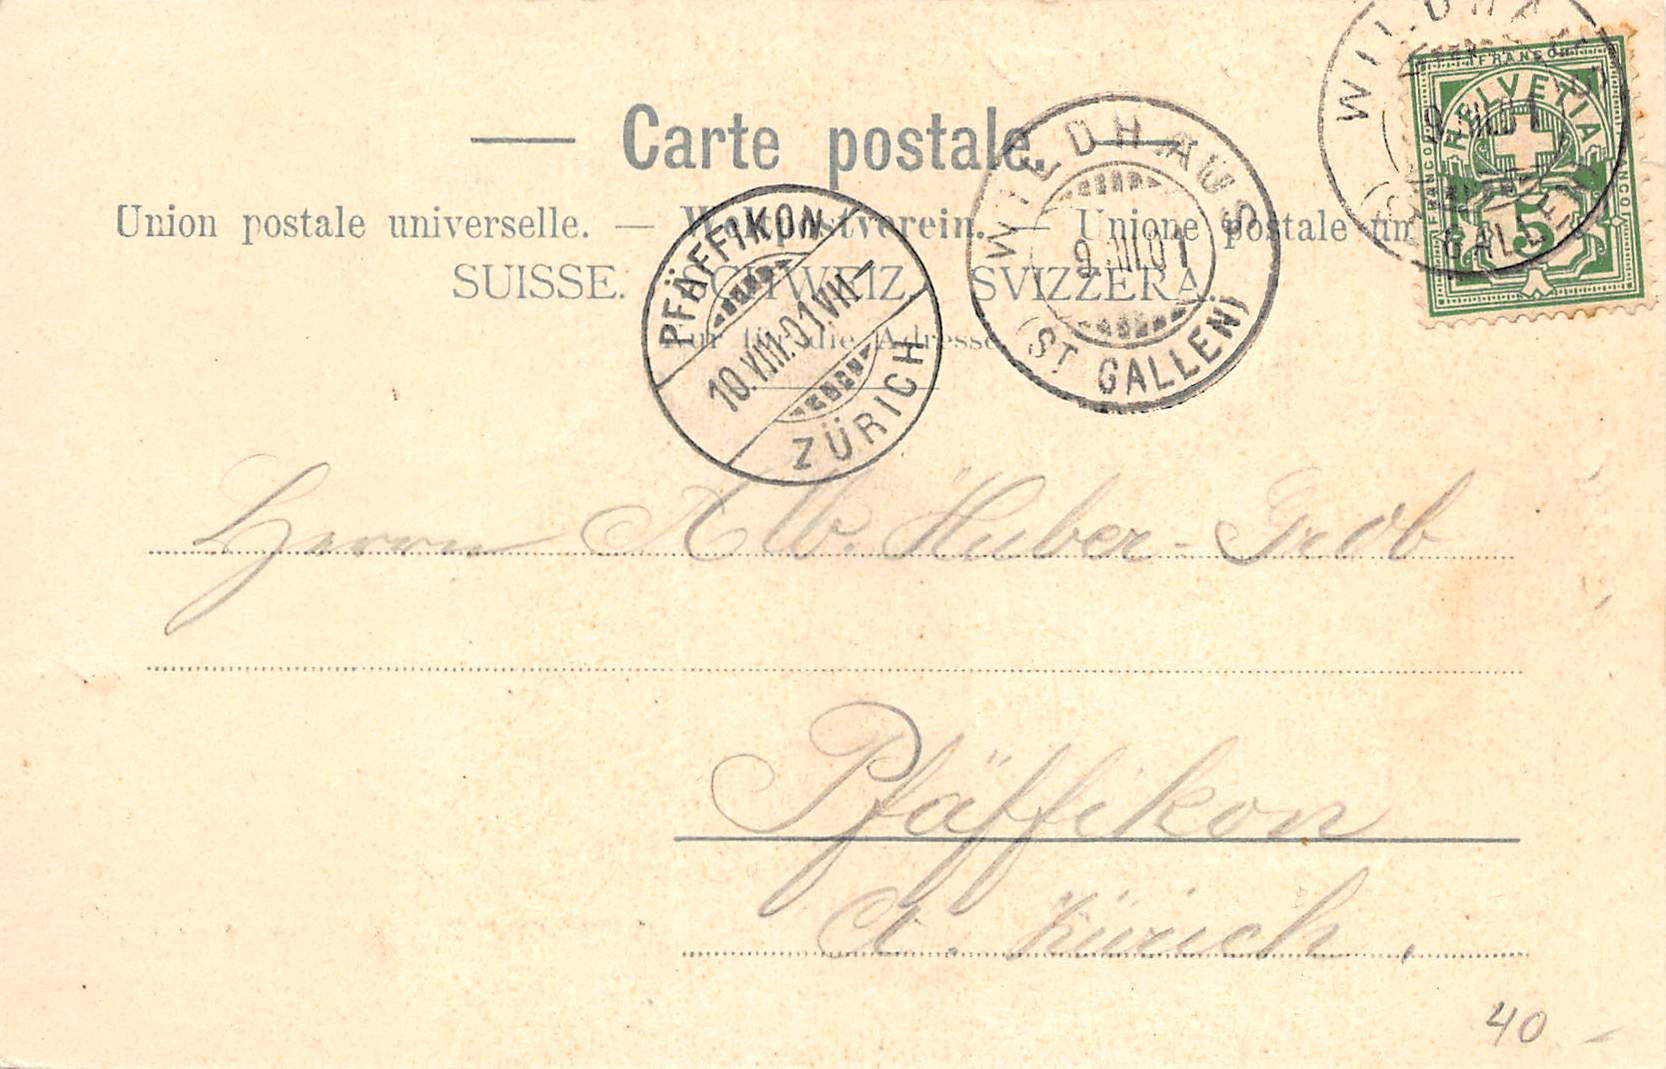 Carte postale.
Union postale universelle. — Weltpostverein. — Unione postale un
SUISSE. SCHWEIZ. SVIZZERA.
Nur für die Adresse.
WILDHAUS
9.VIII.01
(ST. GALLEN)
FRANCO
HELVETIA
FRANCO
FRANCO
5
WILDHAUS
9.VIII.01
(ST GALLEN)
PFÄFFIKON
10.VIII.01.VII
ZÜRICH
Herrn Alb. Huber-Grob
Pfäffikon
Ct. Zürich.
40